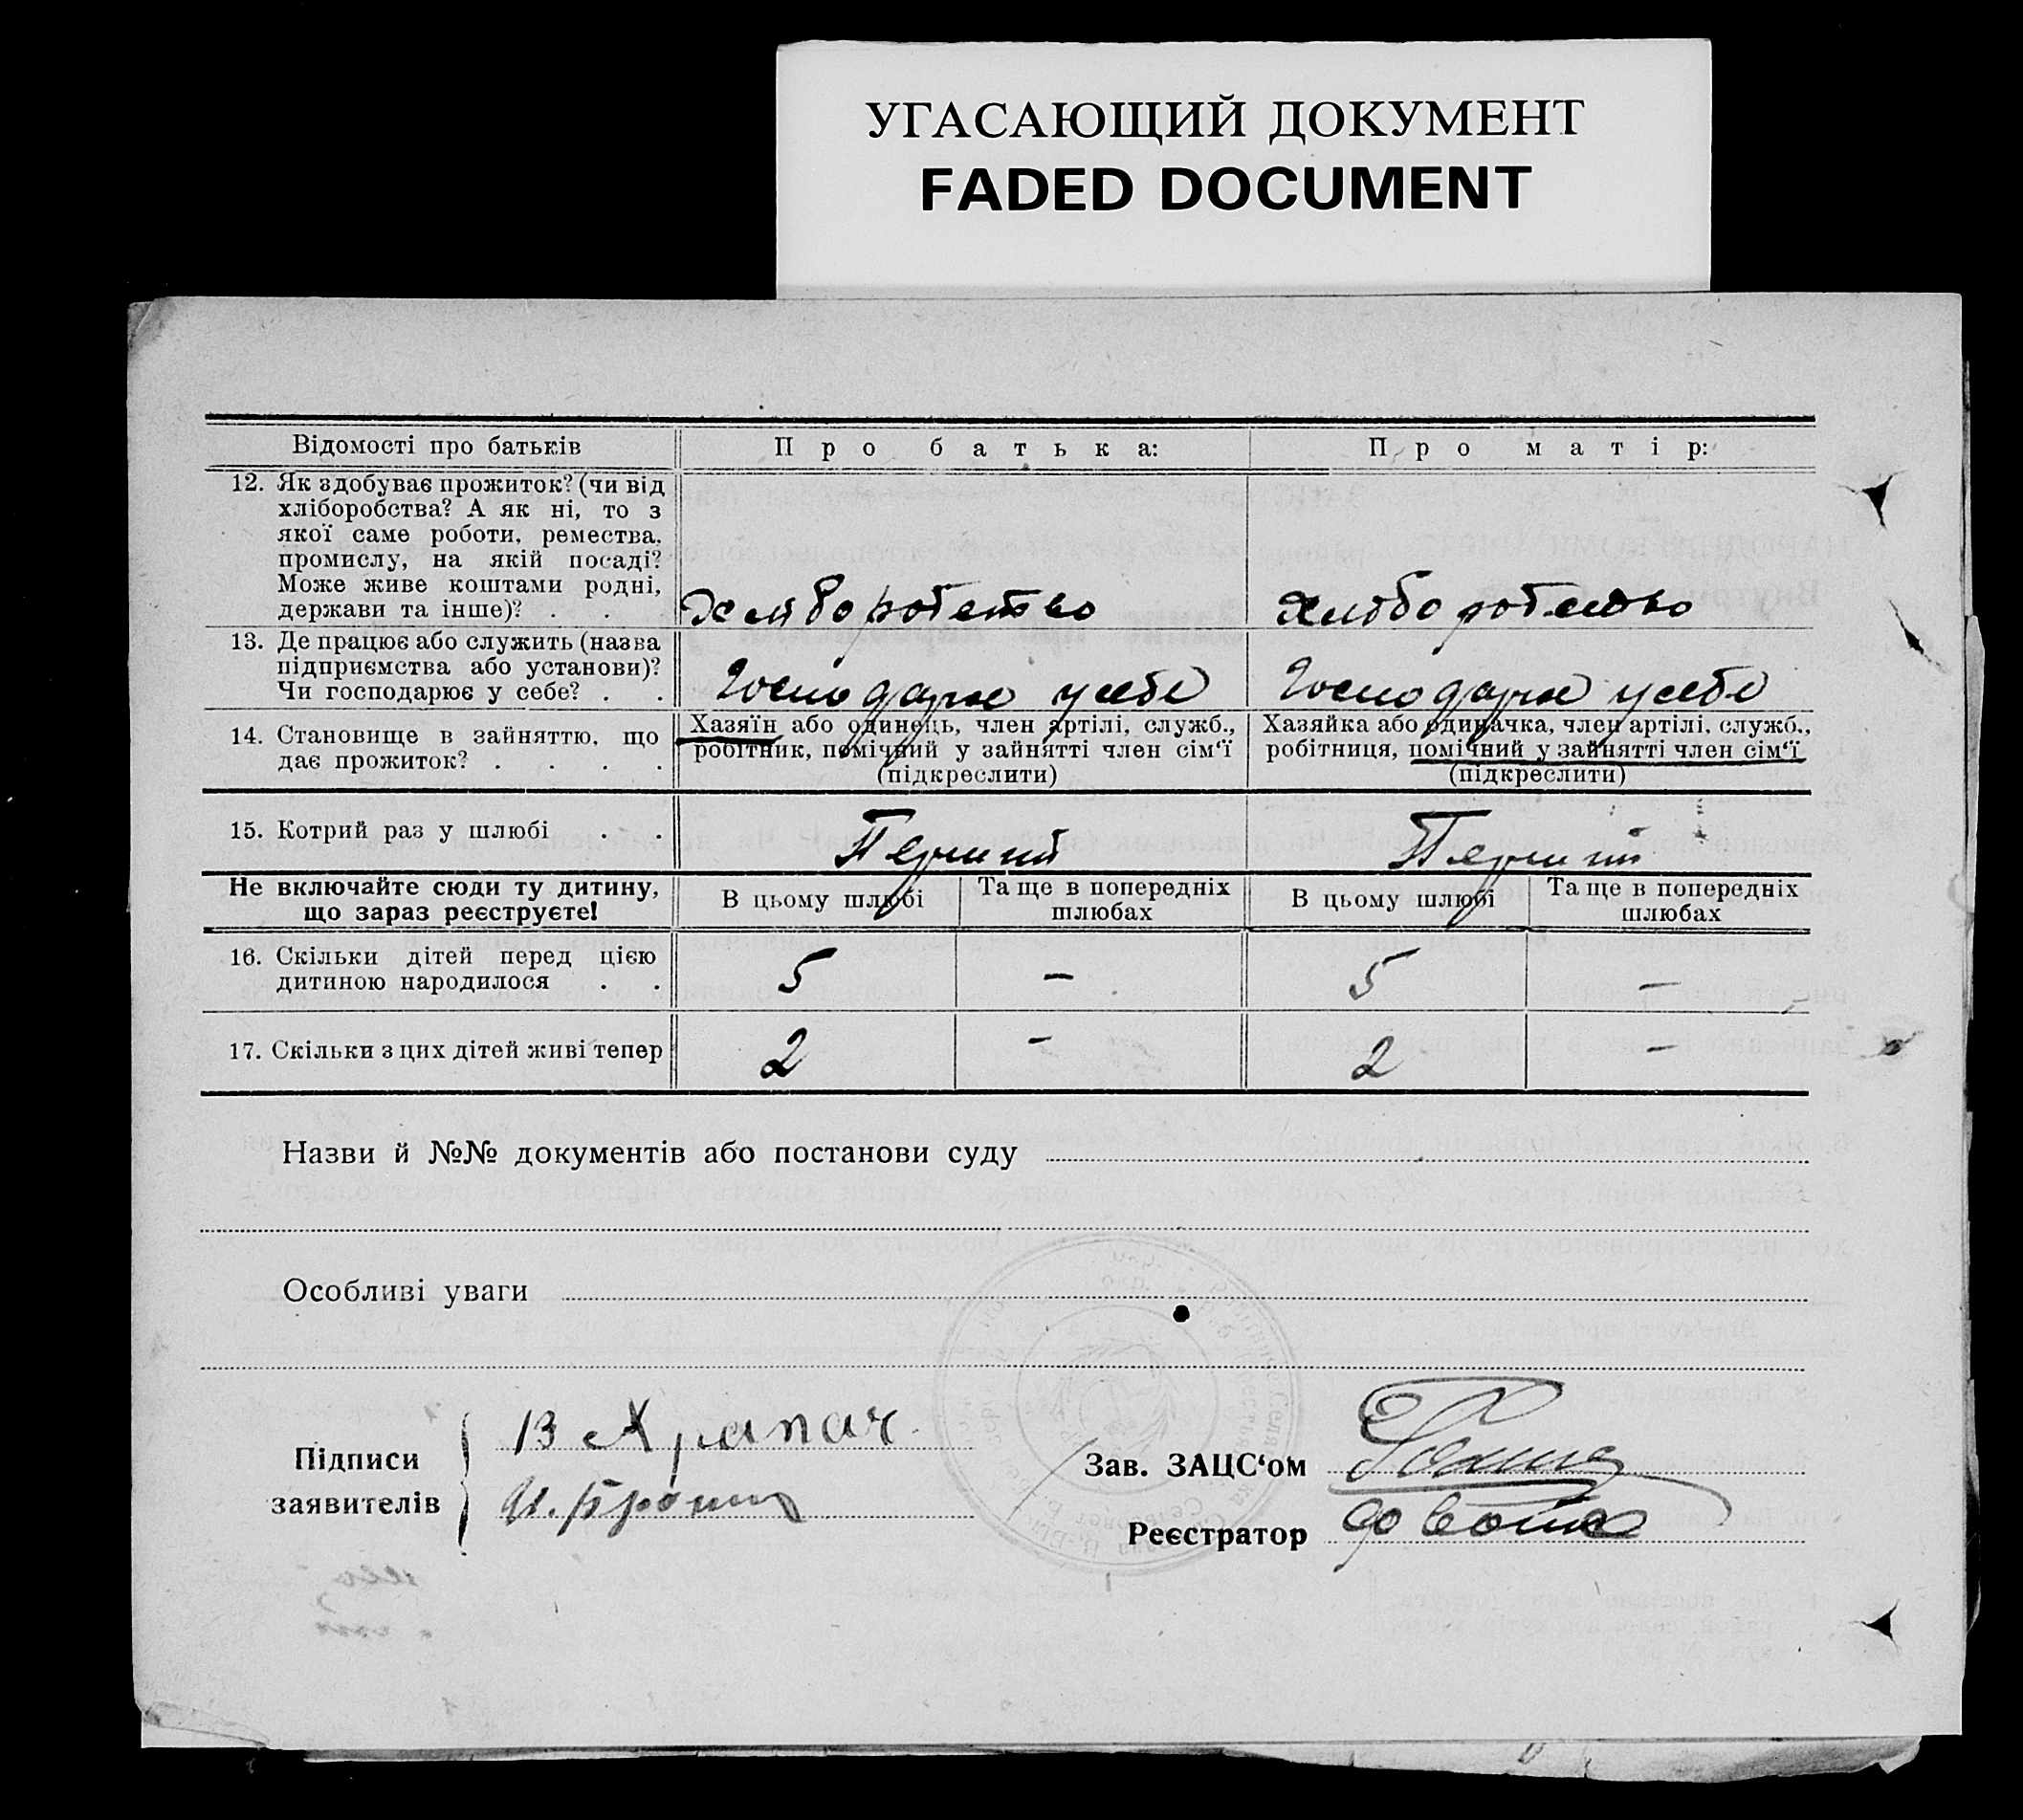 УГАСАЮЩИЙ ДОКУМЕНТ
FADED DOCUMENT
Відомості про батьків
Про батька:
Про матір:
12. Як здобуває прожиток? (чи від
хліборобства? А як ні, то з
якої саме роботи, ремества,
промислу, на якій посаді?
Може живе коштами родні,
держави та інше)? . . .
Хліборобство
Хліборобство
13. Де працює або служить (назва
підприємства або установи)?
Чи господарює у себе? . .
Господарює у себе
Господарює у себе
14. Становище в зайняттю, що
дає прожиток? . . . .
Хазяїн або одинець, член артілі, служб.,
робітник, помічний у зайнятті член сім‘ї
(підкреслити)
Хазяйка або одиначка, член артілі, служб.,
робітниця, помічний у зайнятті член сім‘ї
(підкреслити)
15. Котрий раз у шлюбі . .
Перший
Перший
Не включайте сюди ту дитину,
що зараз реєструєте!
В цьому шлюбі
Та ще в попередніх
шлюбах
В цьому шлюбі
Та ще в попередніх
шлюбах
16. Скільки дітей перед цією
дитиною народилося . .
5
–
5
–
17. Скільки з цих дітей живі тепер
2
–
2
–
Назви й №№ документів або постанови суду
Особливі уваги
Підписи
заявителів
В Храпач
Зав. ЗАЦС‘ом
Реєстратор